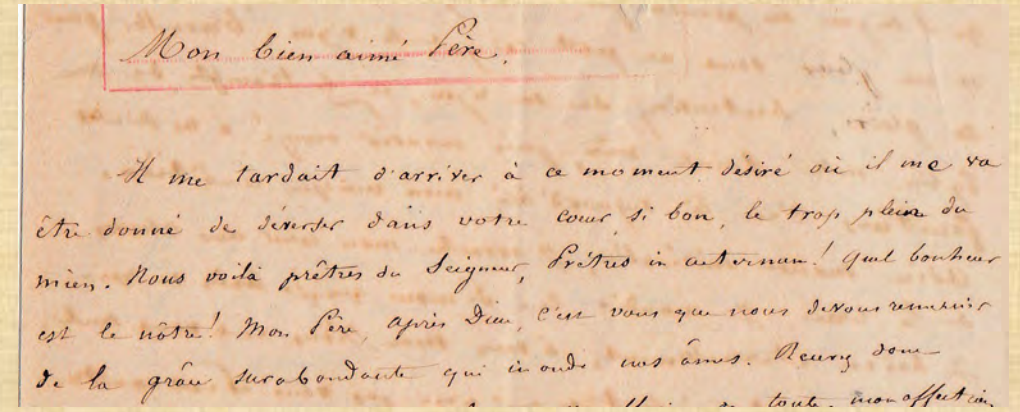 Mon bien aimé Père,
Il me tardait d'arriver à ce moment désiré où il me va
être donné de déverser dans votre coeur si bon, le trop plein du
mien. Nous voilà prêtres du Seigneur, Prêtres in aeternum! Quel bonheur
est le nôtre! Mon Père, après Dieu, c'est vous que nous devons remercier
de la grâce surabondante qui inonde nos âmes. Recevez donc
toute mon affection